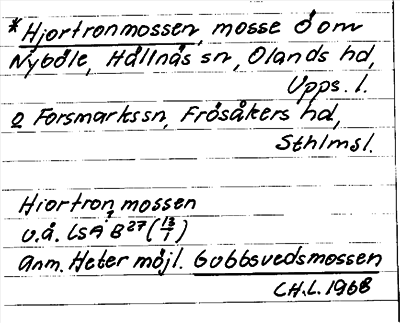 *Hjortronmossen, mosse Ö om
Nyböle, Hållnäs sn, Olands hd,
Upps. l.
2 Forsmarks sn, Frösåkers hd,
Sthlms l.
Hiortron mossen
u.å. LSA B27 (13/1)
Anm. Heter möjl. Gubbsvedsmossen
C.H.L. 1968